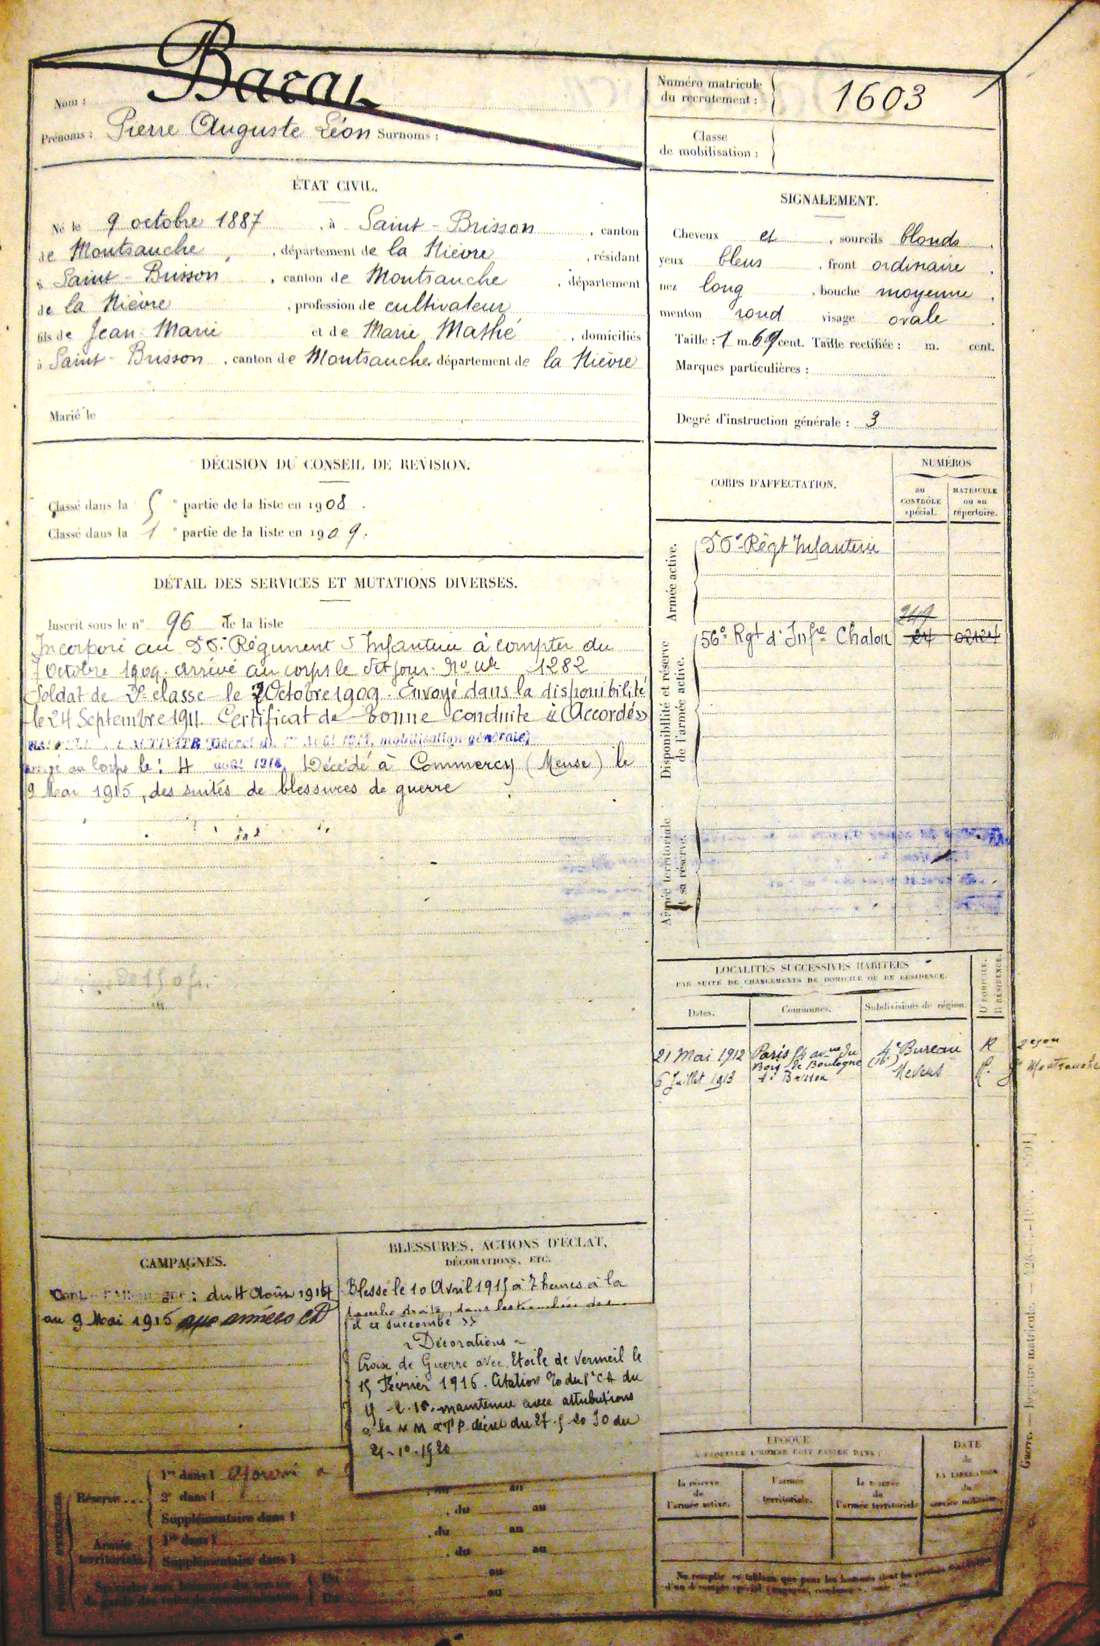 Nom : Baral
Prénoms : Pierre Auguste Léon Surnoms :
Numéro matricule
du recrutement : 1603
Classe
de mobilisation :
ÉTAT CIVIL.
Né le 9 octobre 1887, à Saint-Brisson, canton
de Montsauche, département de la Nièvre, résidant
à Saint-Brisson, canton de Montsauche, département
de la Nièvre, profession de cultivateur
fils de Jean-Marie et de Marie Mathé, domiciliés
à Saint-Brisson, canton de Montsauche, département de la Nièvre
Marié le
SIGNALEMENT.
Cheveux et, sourcils blonds,
yeux bleus, front ordinaire,
nez long, bouche moyenne,
menton rond visage ovale.
Taille : 1 m. 69 cent. Taille rectifiée : m. cent.
Marques particulières :
Degré d'instruction générale : 3
DÉCISION DU CONSEIL DE REVISION.
Classé dans la 5e partie de la liste en 1908.
Classé dans la 1e partie de la liste en 1909.
DÉTAIL DES SERVICES ET MUTATIONS DIVERSES.
Inscrit sous le n° 96 de la liste
Incorporé au Régiment d'Infanterie à compter du
7 Octobre 1909. arrivé au corps le dit jour. No mle 1282
Soldat de 2e classe le 7 Octobre 1909. Envoyé dans la disponibilité
le 24 Septembre 1911. Certificat de bonne conduite « Accordé »
ACTIVITÉ (Décret du 1er Août 1914, mobilisation générale)
Arrivé au Corps le : 4 août 1914. Décédé à Commercy (Meuse) le
9 Mai 1915, des suites de blessures de guerre
CORPS D'AFFECTATION.
NUMÉROS
au
CONTRÔLE
spécial.
MATRICULE
ou au
répertoire.
Armée active.
Régt Infanterie
Disponibilité et réserve
de l'armée active.
56e Rgt d'Infie Chalon
Armée territoriale
et sa réserve.
LOCALITÉS SUCCESSIVES HABITÉES
PAR SUITE DE CHANGEMENTS DE DOMICILE OU DE RÉSIDENCE.
Dates.
Communes.
Subdivisions de région.
D. DOMICILE.
R. RÉSIDENCE.
21 Mai 1912 Paris avue du
Bois de Boulogne
4e Bureau
R
6 Juillet 1913 St Brisson Nevers
Montsauche
CAMPAGNES.
Contre l'Allemagne : du 4 Août 1914
au 9 Mai 1915
BLESSURES, ACTIONS D'ÉCLAT,
DÉCORATIONS, ETC.
Blessé le 10 Avril 1915 à 7 heures à la
droite, dans les tranchées
et succombe »
Décorations
Croix de Guerre avec Etoile de Vermeil le
15 Février 1916. Citation 70 du 8e CA du
maintenue avec attributions
de la MM à TP. décret du 27-5-20 JO du
21-10-1920
Réserve
1re dans l ajourné
2e dans l
Supplémentaire dans l
du au
Armée
territoriale
1re dans l
Supplémentaire dans l
du au
du au
ÉPOQUE
À LAQUELLE L'HOMME DOIT PASSER DANS :
la réserve
de
l'armée active.
l'armée
territoriale.
la réserve
de
l'armée territoriale.
DATE
de
LA LIBÉRATION
du
service militaire.
Guerre. — Registre matricule.